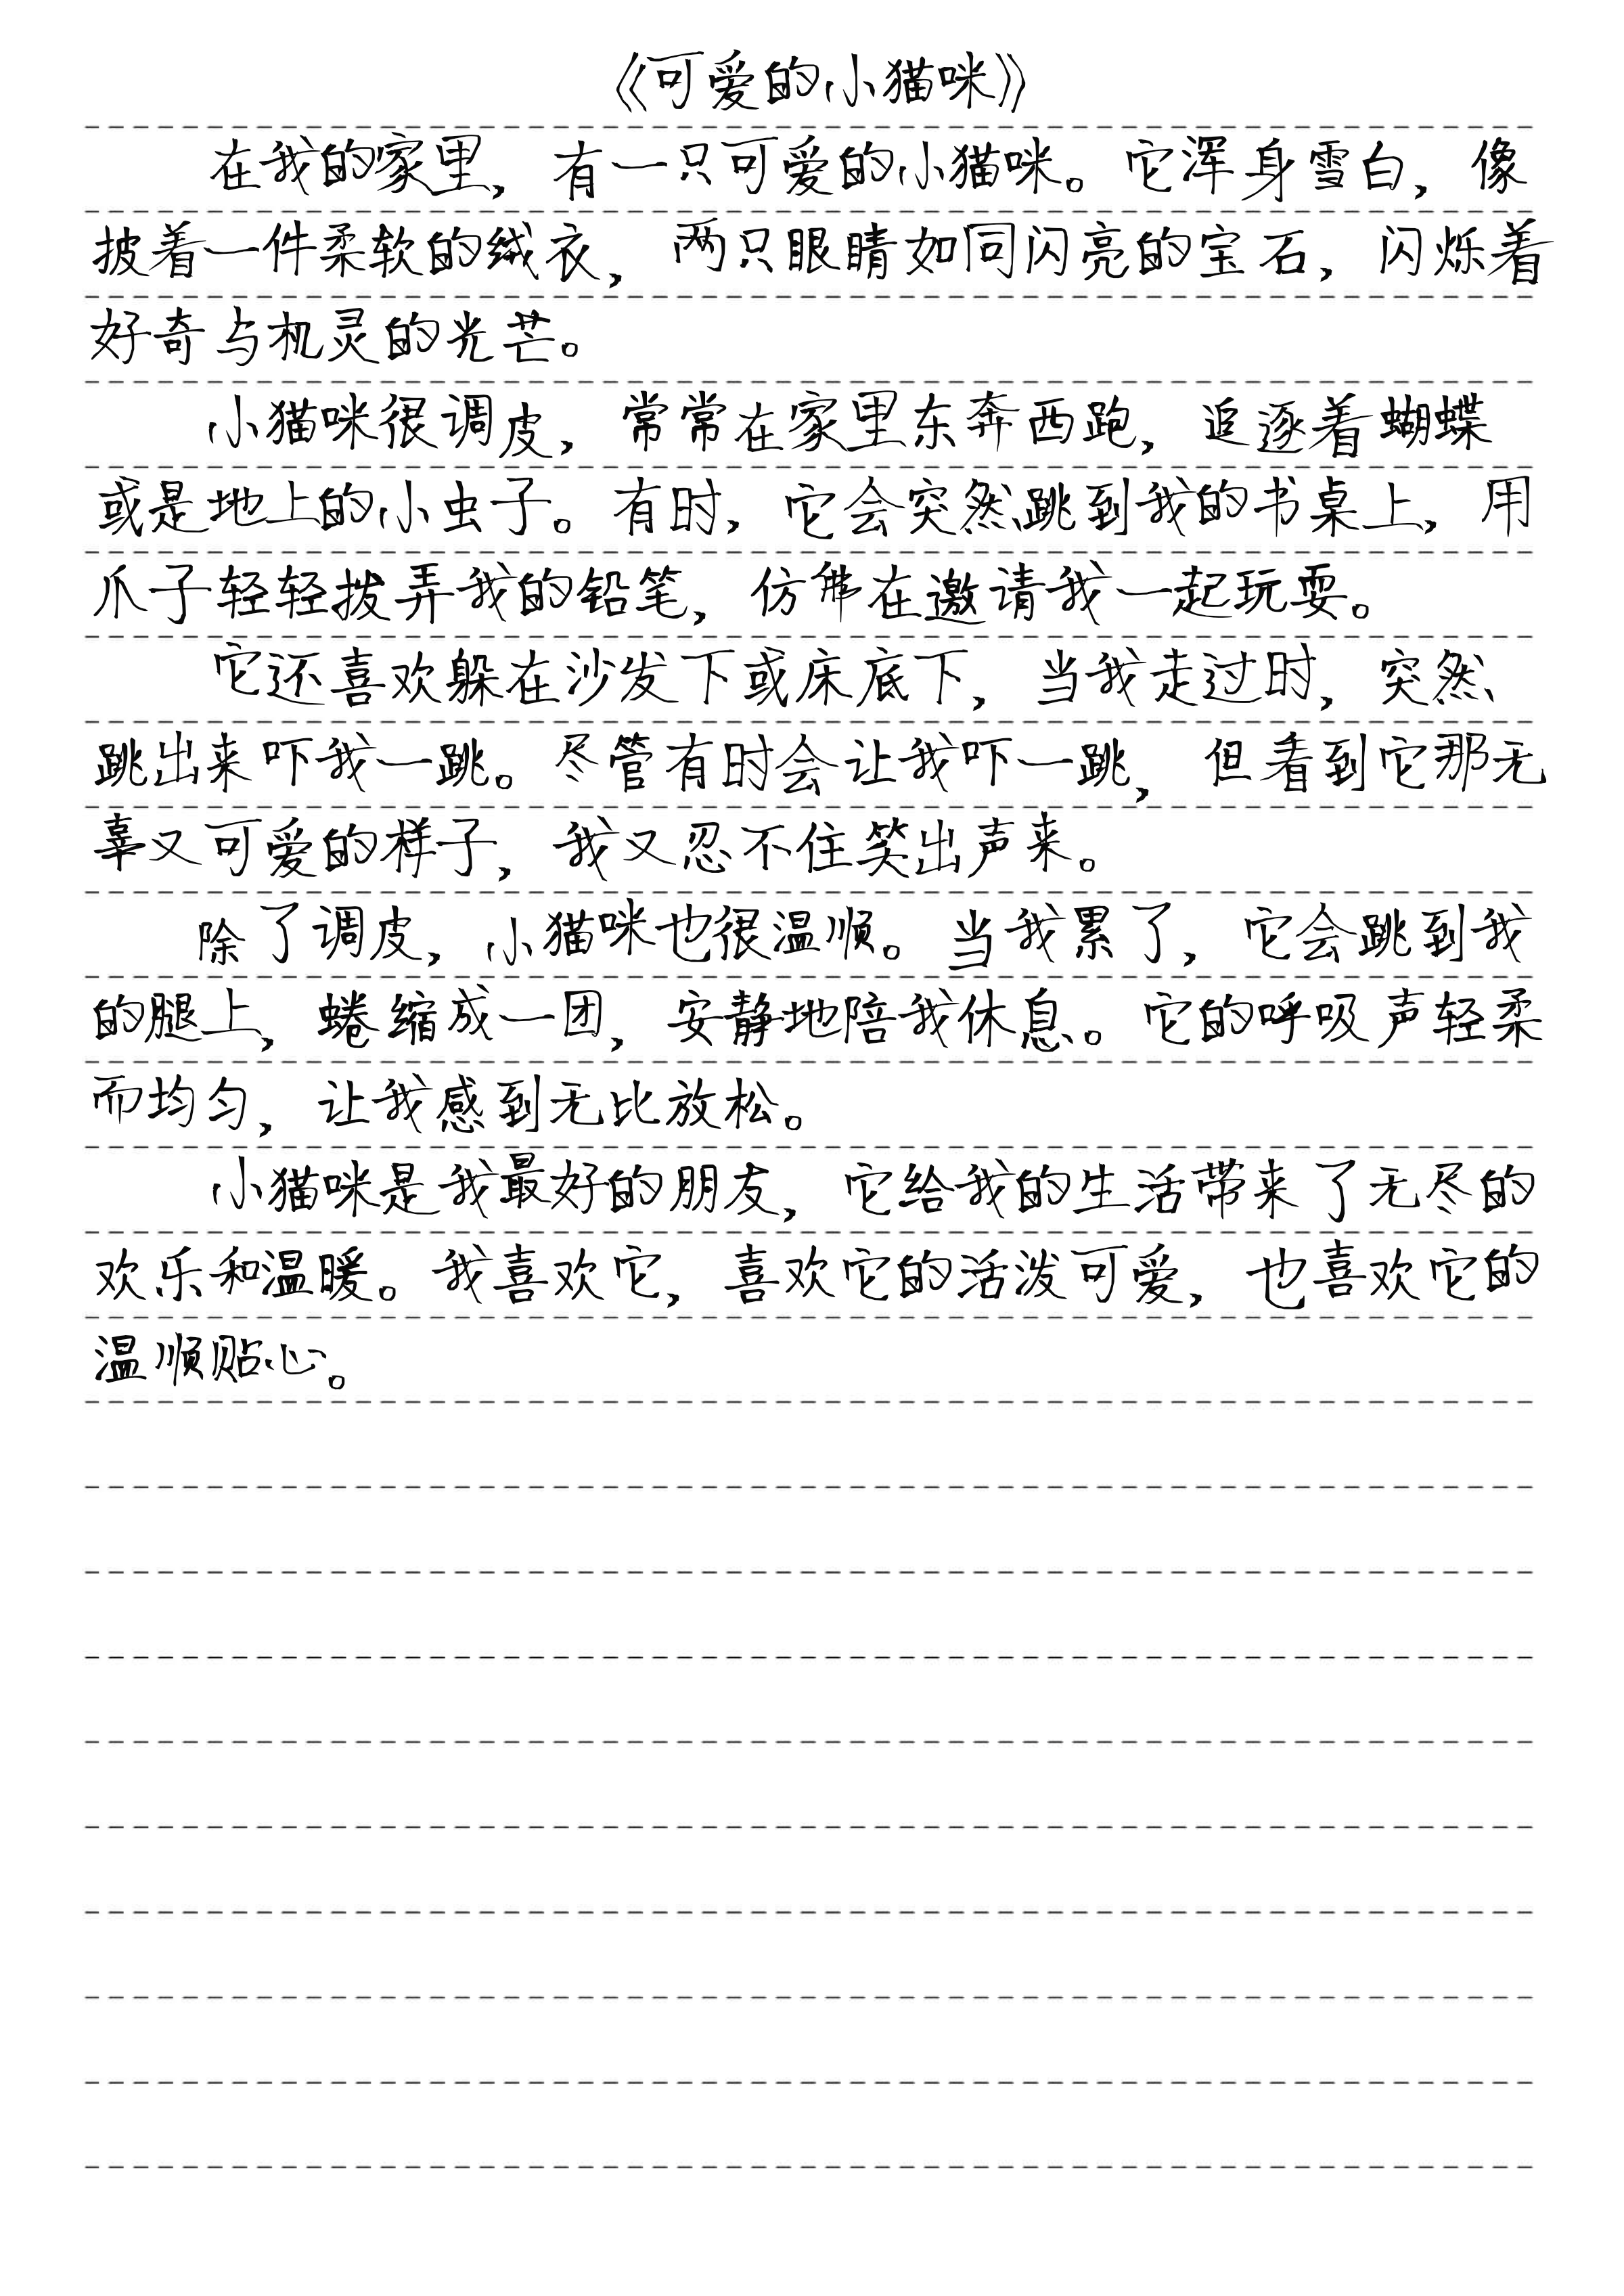 《可爱的小猫咪》
在我的家里，有一只可爱的小猫咪。它浑身雪白，像
披着一件柔软的绒衣，两只眼睛如同闪亮的宝石，闪烁着
好奇与机灵的光芒。
小猫咪很调皮，常常在家里东奔西跑，追逐着蝴蝶
或是地上的小虫子。有时，它会突然跳到我的书桌上，用
爪子轻轻拨弄我的铅笔，仿佛在邀请我一起玩耍。
它还喜欢躲在沙发下或床底下，当我走过时，突然
跳出来吓我一跳。尽管有时会让我吓一跳，但看到它那无
辜又可爱的样子，我又忍不住笑出声来。
除了调皮，小猫咪也很温顺。当我累了，它会跳到我
的腿上，蜷缩成一团，安静地陪我休息。它的呼吸声轻柔
而均匀，让我感到无比放松。
小猫咪是我最好的朋友，它给我的生活带来了无尽的
欢乐和温暖。我喜欢它，喜欢它的活泼可爱，也喜欢它的
温顺贴心。